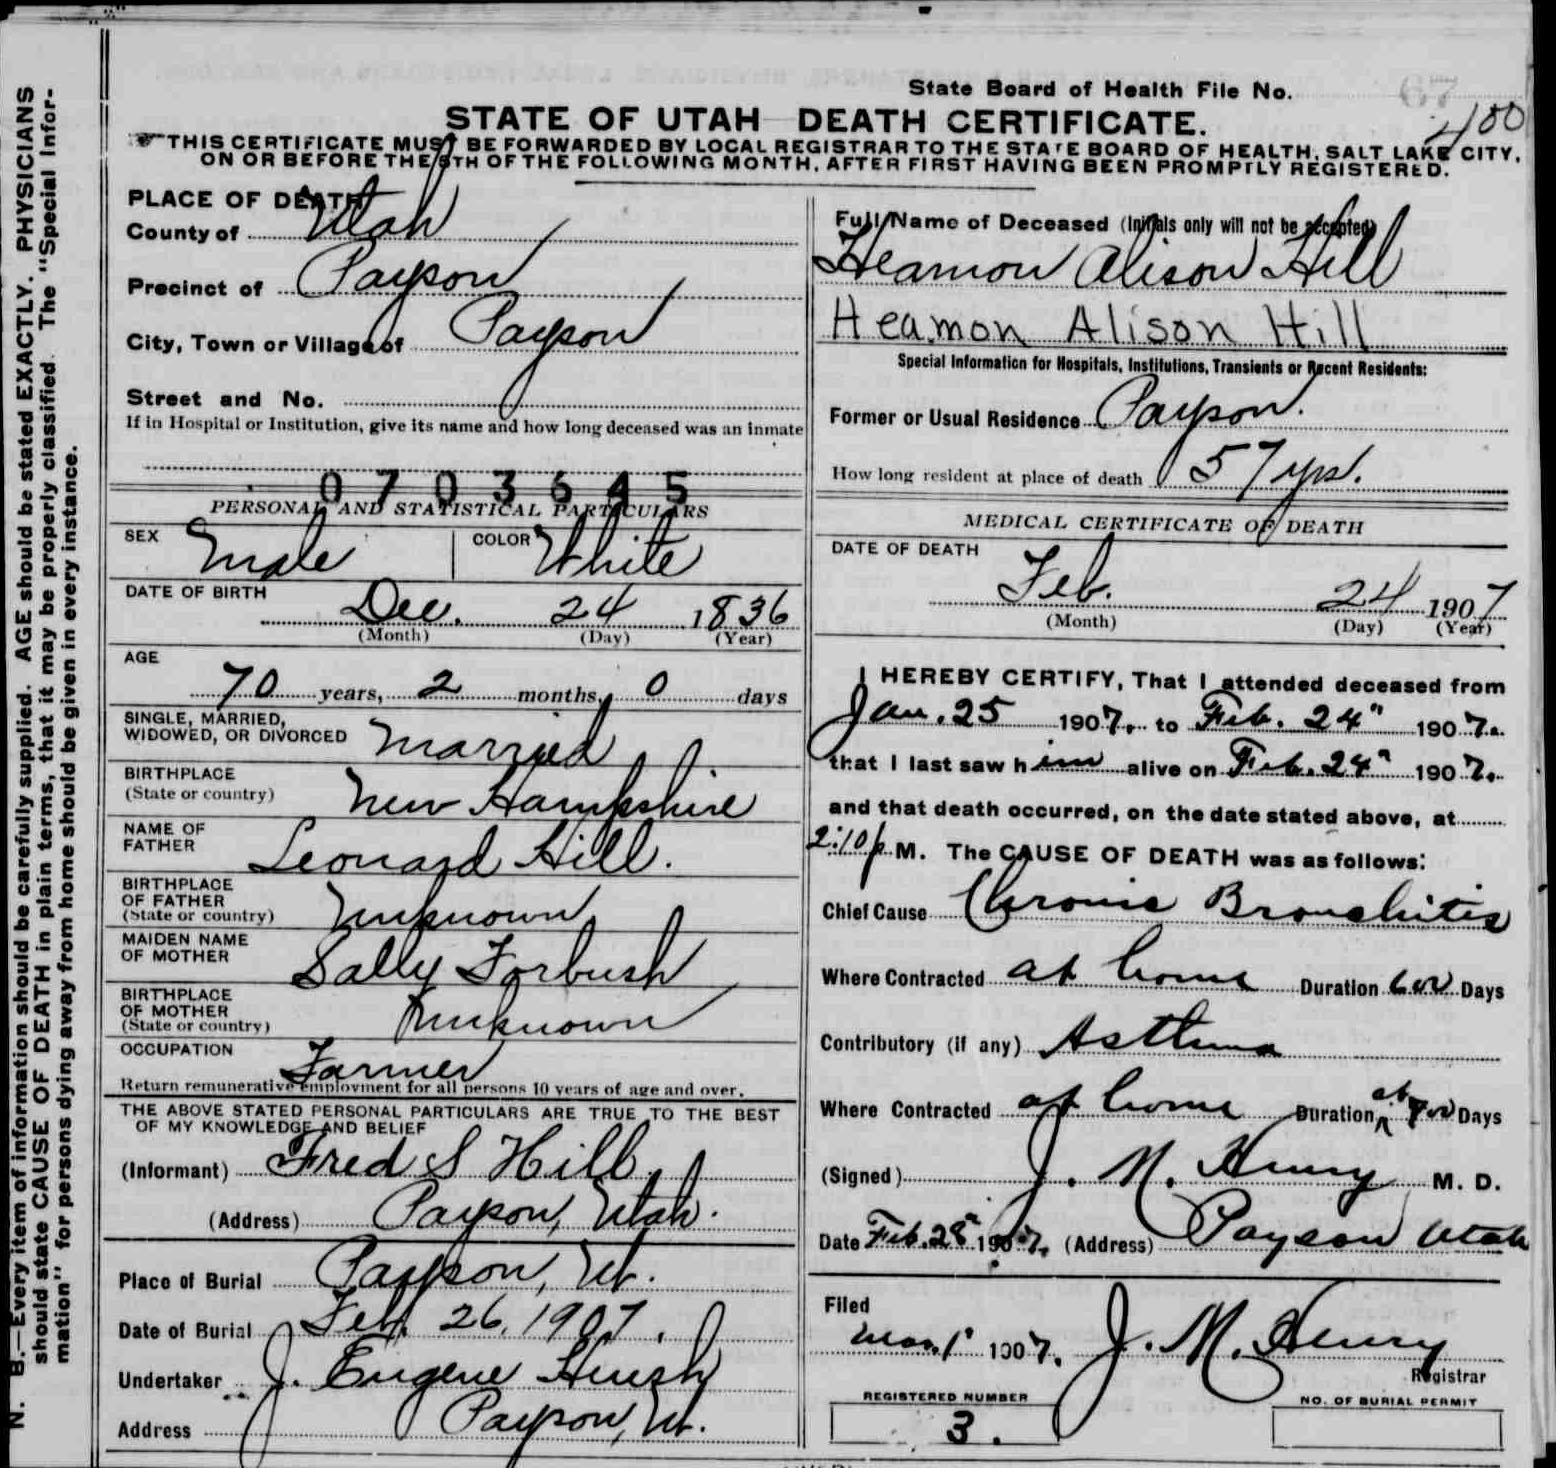 State Board of Health File No.
67
400
STATE OF UTAH DEATH CERTIFICATE.
THIS CERTIFICATE MUST BE FORWARDED BY LOCAL REGISTRAR TO THE STATE BOARD OF HEALTH, SALT LAKE CITY,
ON OR BEFORE THE 5TH OF THE FOLLOWING MONTH, AFTER FIRST HAVING BEEN PROMPTLY REGISTERED.
N. B.—Every item of information should be carefully supplied. AGE should be stated EXACTLY. PHYSICIANS
should state CAUSE OF DEATH in plain terms, that it may be properly classified. The "Special Infor-
mation" for persons dying away from home should be given in every instance.
PLACE OF DEATH
County of Utah
Precinct of Payson
City, Town or Village of Payson
Street and No.
If in Hospital or Institution, give its name and how long deceased was an inmate
0703645
PERSONAL AND STATISTICAL PARTICULARS
SEX Male COLOR White
DATE OF BIRTH
Dec. 24 1836
(Month) (Day) (Year)
AGE
70 years, 2 months, 0 days
SINGLE, MARRIED,
WIDOWED, OR DIVORCED Married
BIRTHPLACE
(State or country) New Hampshire
NAME OF
FATHER Leonard Hill.
BIRTHPLACE
OF FATHER
(State or country) Unknown
MAIDEN NAME
OF MOTHER Sally Forbush
BIRTHPLACE
OF MOTHER
(State or country) Unknown
OCCUPATION Farmer
Return remunerative employment for all persons 10 years of age and over.
THE ABOVE STATED PERSONAL PARTICULARS ARE TRUE TO THE BEST
OF MY KNOWLEDGE AND BELIEF
(Informant) Fred S Hill
(Address) Payson, Utah.
Place of Burial Payson, Ut.
Date of Burial Feb. 26, 1907.
Undertaker J. Eugene Huish
Address Payson, Ut.
Full Name of Deceased (Initials only will not be accepted)
Heamon Alison Hill
Heamon Alison Hill
Special Information for Hospitals, Institutions, Transients or Recent Residents:
Former or Usual Residence Payson.
How long resident at place of death 57 yrs.
MEDICAL CERTIFICATE OF DEATH
DATE OF DEATH
Feb. 24 1907
(Month) (Day) (Year)
I HEREBY CERTIFY, That I attended deceased from
Jan. 25 1907, to Feb. 24" 1907.
that I last saw him alive on Feb. 24" 1907.
and that death occurred, on the date stated above, at
2:10 p M. The CAUSE OF DEATH was as follows:
Chief Cause Chronic Bronchitis
Where Contracted at home Duration Days
Contributory (if any) Asthma
Where Contracted at home Duration Days
(Signed) J. M. Henry M. D.
Date Feb. 28" 1907. (Address) Payson Utah
Filed
Mar. 1" 1907. J. M. Henry
Registrar
REGISTERED NUMBER
3.
NO. OF BURIAL PERMIT